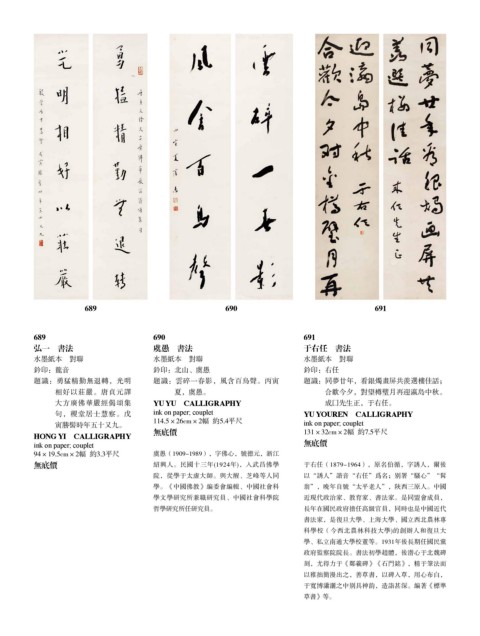 689
690
691
689
弘一　書法
水墨紙本　對聯
鈐印：龍音
題識：勇猛精勤無退轉，光明
相好以莊嚴。唐貞元譯
大方廣佛華嚴經偈頌集
句，視堂居士慧察。戊
寅勝髻時年五十又九。
HONG YI　CALLIGRAPHY
ink on paper; couplet
94 × 19.5cm × 2幅　約3.3平尺
無底價
690
虞愚　書法
水墨紙本　對聯
鈐印：北山、虞愚
題識：雲碎一春影，風含百鳥聲。丙寅
夏，虞愚。
YU YU　CALLIGRAPHY
ink on paper; couplet
114.5 × 26cm × 2幅　約5.4平尺
無底價
虞愚（1909~1989），字佛心，號德元，浙江
紹興人。民國十三年(1924年)，入武昌佛學
院，從學于太虛大師。與大醒、芝峰等人同
學。《中國佛教》編委會編輯、中國社會科
學文學研究所兼職研究員、中國社會科學院
哲學研究所任研究員。
691
于右任　書法
水墨紙本　對聯
鈐印：右任
題識：同夢廿年，看銀燭畫屏共羨選樓佳話；
合歡今夕，對望樽璧月再迎瀛島中秋。
成□先生正，于右任。
YU YOUREN　CALLIGRAPHY
ink on paper; couplet
131 × 32cm × 2幅　約7.5平尺
無底價
于右任（1879~1964），原名伯循，字誘人，爾後
以“誘人”諧音“右任”爲名；別署“騷心”“髯
翁”，晚年自號“太平老人”，陝西三原人。中國
近現代政治家、教育家、書法家。是同盟會成員，
長年在國民政府擔任高級官員，同時也是中國近代
書法家，是復旦大學、上海大學、國立西北農林專
科學校（今西北農林科技大學)的創辦人和復旦大
學、私立南通大學校董等。1931年後長期任國民黨
政府監察院院長。書法初學趙體，後潛心于北魏碑
刻，尤得力于《鄭羲碑》《石門銘》，精于筆法而
以雍拙簡淡出之，善草書，以碑入草，用心布白，
于寬博瀟灑之中別具神韵，造詣甚深。編著《標準
草書》等。